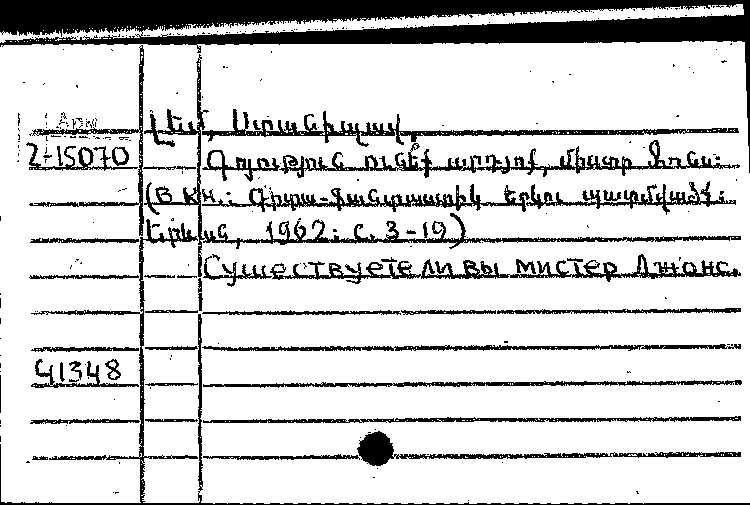 Арм
Լեմ, Ստանիսլավ.
2-15070 Գոյություն ունե՞ք արդյոք, միստր Ջոնս:
(В кн.: Գիտա-ֆանտաստիկ երկու պատմվածք:
Երևան, 1962: с. 3-19)
Существуете ли вы мистер Джонс.
41348